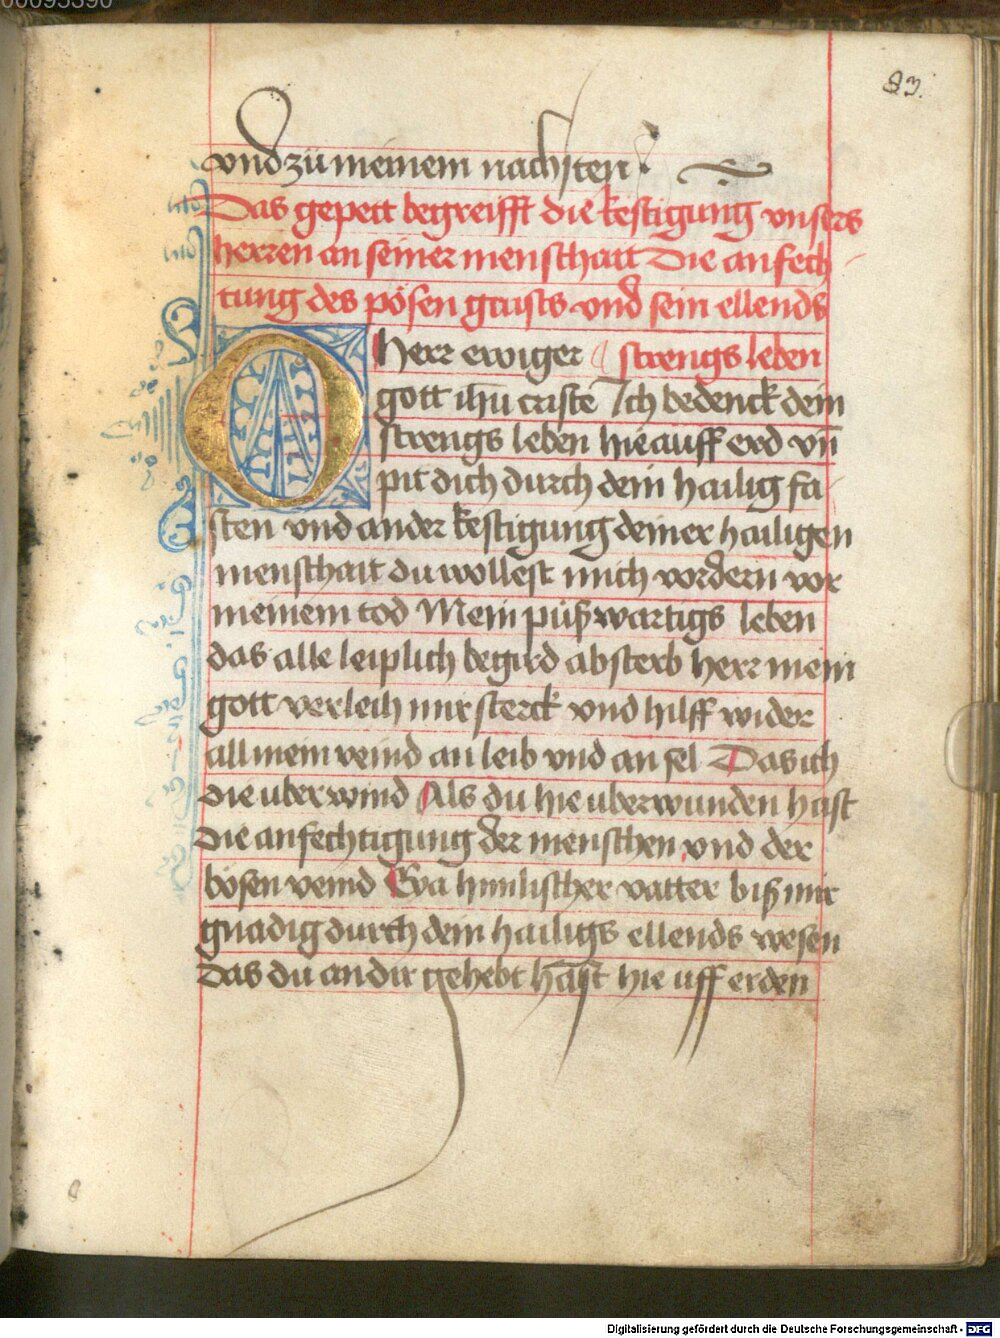 00095390
83.
vnd zü meinem nachsten
Das gepett begreifft die kestigung vnsers
herren an seiner menschait Die anfech
tung des pösen gaists vnd sein ellends
O herr ewiger strengs leben
gott ihū criste Ich bedenck dein
strengs leben hie auff erd vn̄
pit dich durch dein hailig fa
sten vnd ander kestigung deiner hailigen
menschait du wollest mich vordern vor
meinem tod Mein püßwartigs leben
das alle leiplich begird absterb herr mein
gott verleih mir sterck vnd hilff wider
all mein veind an leib vnd an sel Das ich
die uberwind Als du hie uberwunden hast
die anfechtigung der menschen vnd der
bösen veind Eya himlischer vatter biß mir
gnadig durch dein hailigs ellends wesen
das du an dir gehebt hast hie uff erden
Digitalisierung gefördert durch die Deutsche Forschungsgemeinschaft - DFG